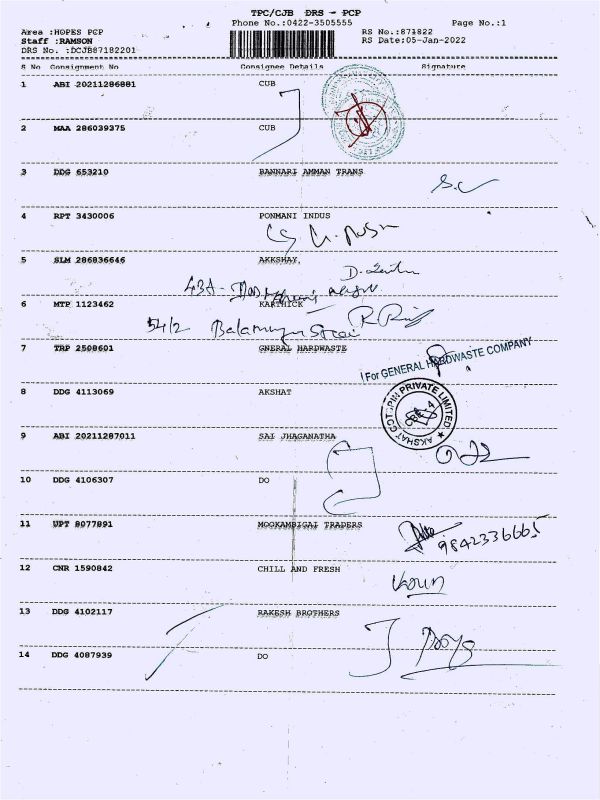 TPC/CJB DRS - PCP
Phone No.:0422-3505555 Page No.:1
Area :HOPES PCP RS No.:871822
Staff :RAMSON RS Date:05-Jan-2022
DRS No. :DCJB87182201
S No Consignment No Consignee Details Signature
1 ABI 20211286881 CUB
2 MAA 286039375 CUB
3 DDG 653210 BANNARI AMMAN TRANS
4 RPT 3430006 PONMANI INDUS
5 SLM 286836646 AKKSHAY,
43A-
6 MTP 1123462 KARTHICK
54/2
7 TRP 2508601 GNERAL HARDWASTE
For GENERAL HARDWASTE COMPANY
8 DDG 4113069 AKSHAT
AKSHAT COTSPIN PRIVATE LIMITED
CBE-4
9 ABI 20211287011 SAI JHAGANATHA
10 DDG 4106307 DO
11 UPT 8077891 MOOKAMBIGAI TRADERS
9842336665
12 CNR 1590842 CHILL AND FRESH
13 DDG 4102117 RAKESH BROTHERS
14 DDG 4087939 DO